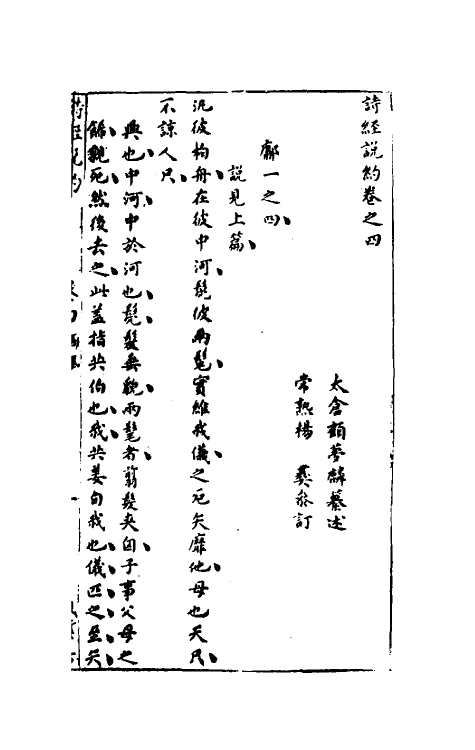 詩經說約卷之四
太倉顧夢麟纂述
常熟楊　彝參訂
鄘一之四
說見上篇
汎彼柏舟在彼中河髧彼兩髦實維我儀之死矢靡他母也天只
不諒人只
興也中河中於河也髧髮垂貌兩髦者翦髮夾囟子事父母之
飾親死然後去之此蓋指共伯也我共姜自我也儀匹之至矢